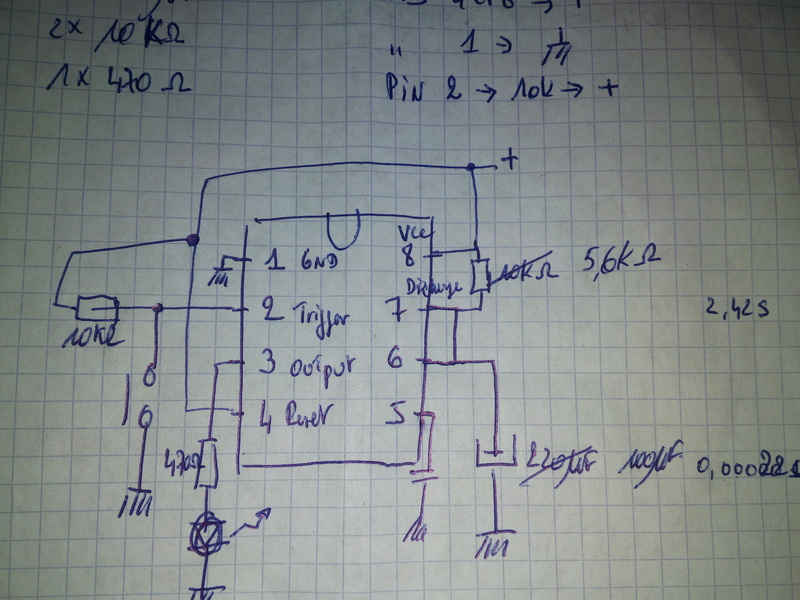 2x 10KΩ
1x 470Ω
" 1 →
PIN 2 → 10K → +
+
VCC
1 GND
8
10KΩ 5,6KΩ
Discharge
2 Trigger
7
2,42s
10KΩ
3 Output
6
4 Reset
5
470Ω
220µF 100µF 0,00022